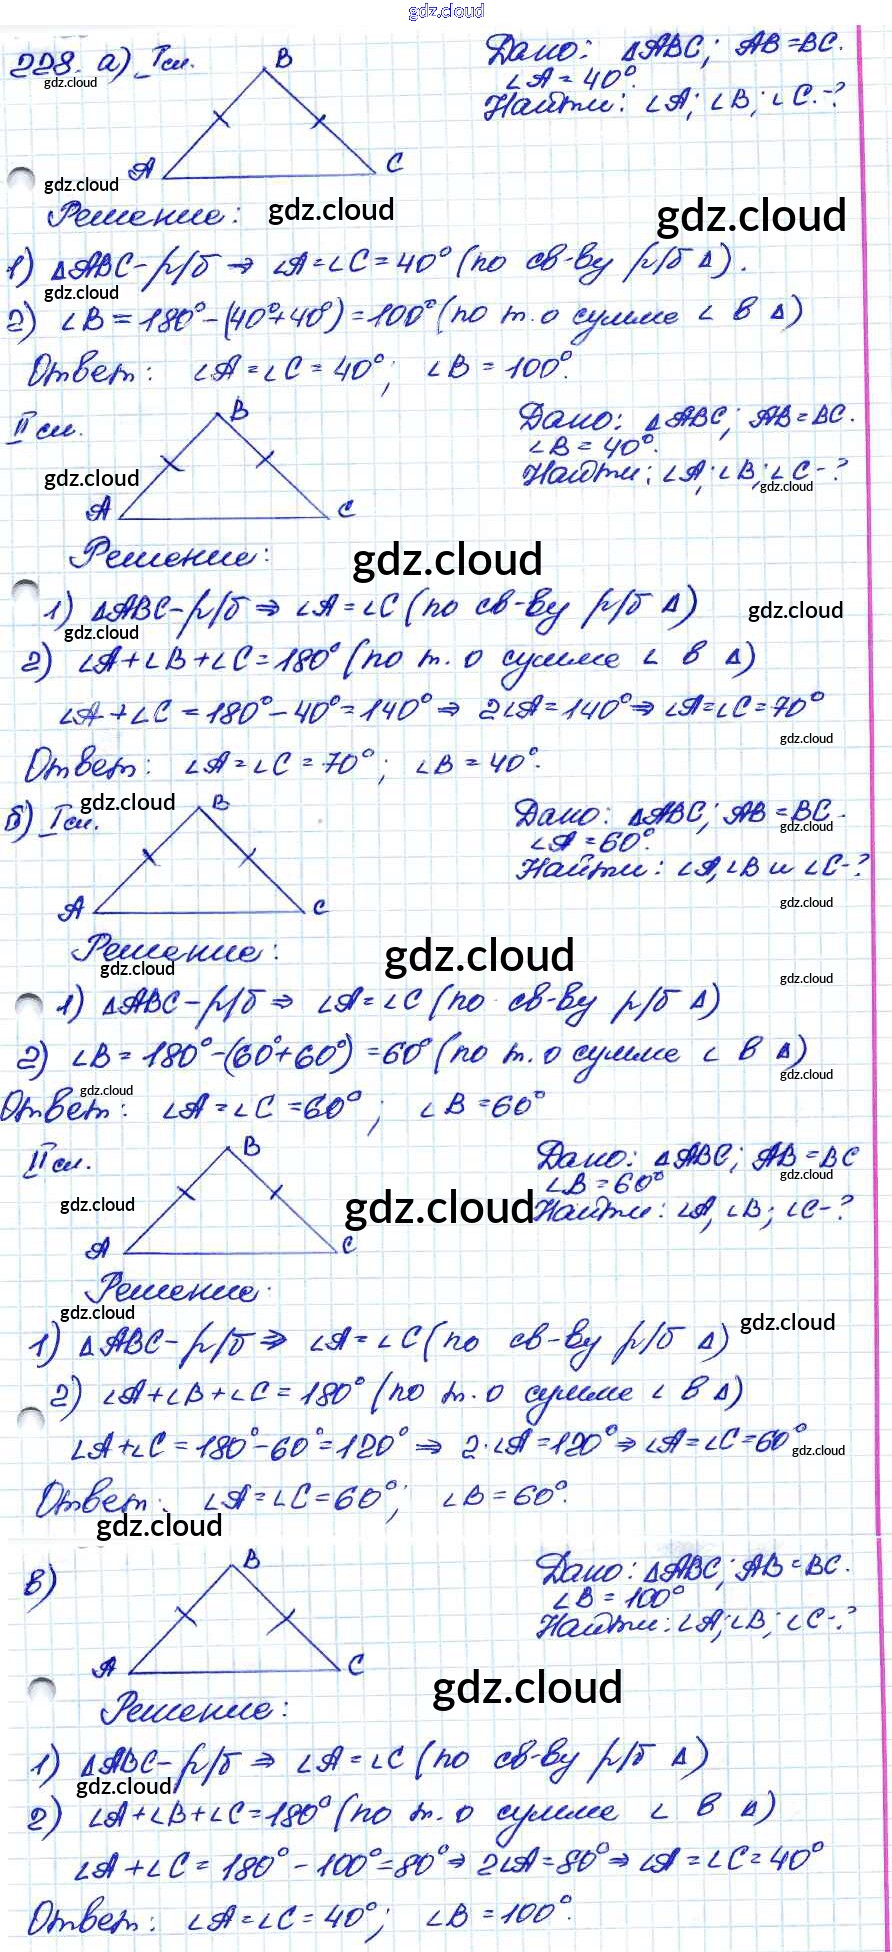 gdz.cloud
228. а) I сл.
B
Дано: ΔABC; AB=BC.
∠A=40°.
gdz.cloud
Найти: ∠A; ∠B; ∠C.-?
A C
gdz.cloud
Решение: gdz.cloud gdz.cloud
1) ΔABC-р/б ⇒ ∠A=∠C=40° (по св-ву р/б Δ).
gdz.cloud
2) ∠B=180°-(40°+40°)=100° (по т. о сумме ∠ в Δ)
Ответ: ∠A=∠C=40°; ∠B=100°.
II сл.
B
Дано: ΔABC; AB=BC.
∠B=40°.
gdz.cloud
Найти: ∠A; ∠B; ∠C-?
gdz.cloud
A C
Решение: gdz.cloud
1) ΔABC-р/б ⇒ ∠A=∠C (по св-ву р/б Δ) gdz.cloud
gdz.cloud
2) ∠A+∠B+∠C=180° (по т. о сумме ∠ в Δ)
∠A+∠C=180°-40°=140° ⇒ 2∠A=140° ⇒ ∠A=∠C=70°
gdz.cloud
Ответ: ∠A=∠C=70°; ∠B=40°.
б) I сл. gdz.cloud
B
Дано: ΔABC; AB=BC.
gdz.cloud
∠A=60°.
Найти: ∠A, ∠B и ∠C-?
gdz.cloud
A C
Решение: gdz.cloud
gdz.cloud gdz.cloud
1) ΔABC-р/б ⇒ ∠A=∠C (по св-ву р/б Δ)
2) ∠B=180°-(60°+60°)=60° (по т. о сумме ∠ в Δ)
gdz.cloud gdz.cloud
Ответ: ∠A=∠C=60°; ∠B=60°
II сл.
B
Дано: ΔABC; AB=BC
gdz.cloud
∠B=60°
gdz.cloud gdz.cloud
Найти: ∠A, ∠B; ∠C-?
A C
Решение.
gdz.cloud gdz.cloud
1) ΔABC-р/б ⇒ ∠A=∠C (по св-ву р/б Δ)
2) ∠A+∠B+∠C=180° (по т. о сумме ∠ в Δ)
∠A+∠C=180°-60°=120° ⇒ 2·∠A=120° ⇒ ∠A=∠C=60°
gdz.cloud
Ответ: ∠A=∠C=60°; ∠B=60°.
gdz.cloud
в)
B
Дано: ΔABC; AB=BC.
∠B=100°
Найти: ∠A; ∠B; ∠C-?
A C
gdz.cloud
Решение:
1) ΔABC-р/б ⇒ ∠A=∠C (по св-ву р/б Δ)
gdz.cloud
2) ∠A+∠B+∠C=180° (по т. о сумме ∠ в Δ)
∠A+∠C=180°-100°=80° ⇒ 2∠A=80° ⇒ ∠A=∠C=40°
Ответ: ∠A=∠C=40°; ∠B=100°.